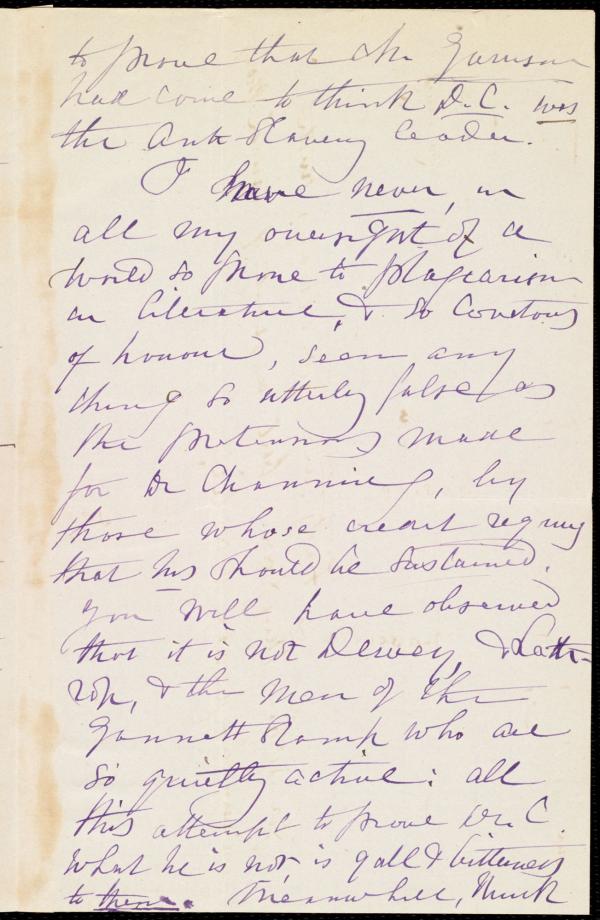 to prove that Mr Garrison
had come to think D.C. was
the Anti Slavery leader.
I have never, in
all my oversight of a
world so prone to plagiarism
in literature, & so covetous
of honour, seen any
thing so utterly false as
the pretensions made
for Dr Channing, by
those whose credit requires
that his should be sustained.
You will have observed
that it is not Dewey, & Loth-
rop, & the men of the
Gannett stamp who are
so quietly active: all
this attempt to prove Dr. C.
what he is not, is gall & bitterness
to them. Meanwhile, think